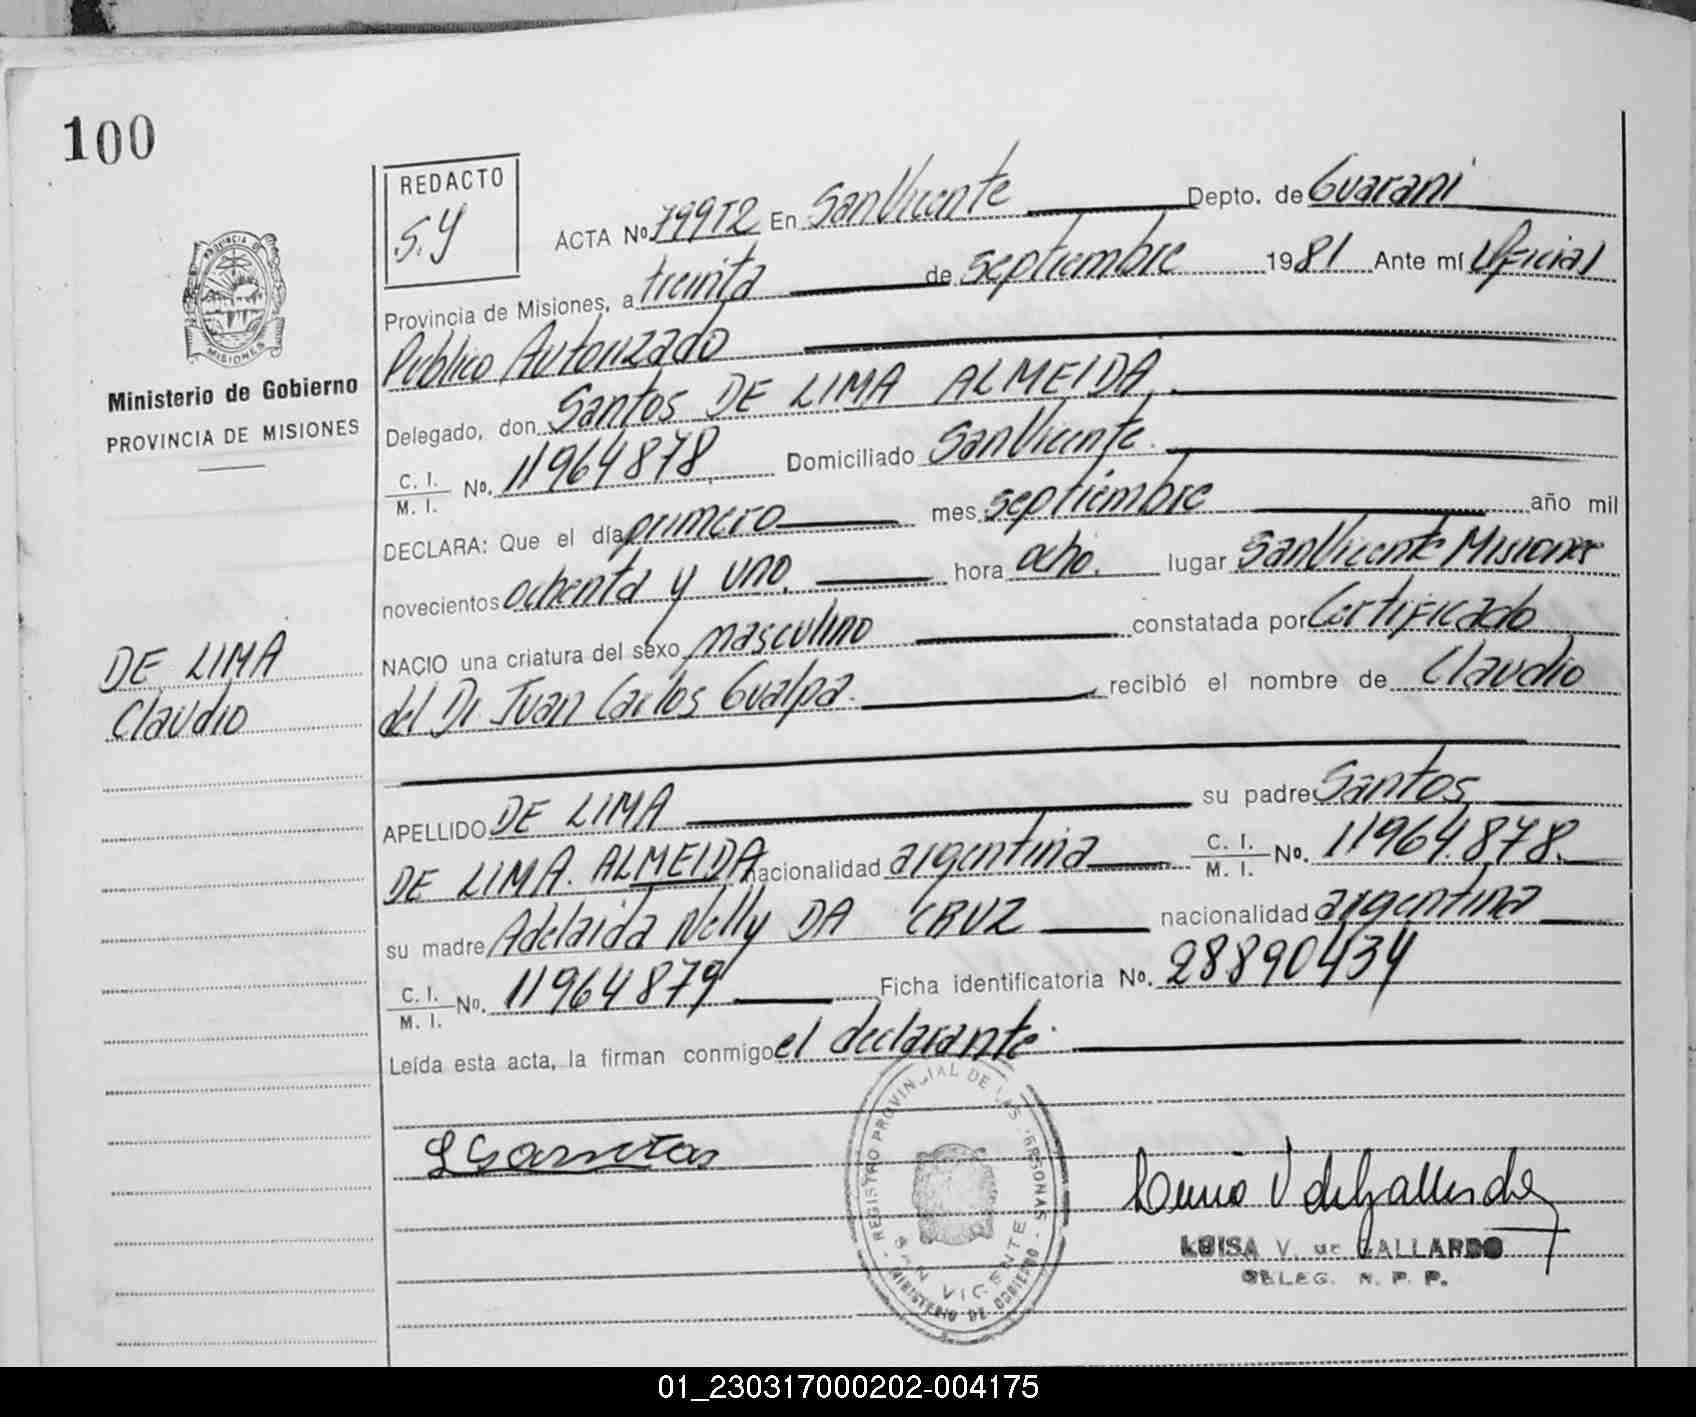 100
REDACTO
S.Y
ACTA No 799T2 En San Vicente Depto. de Guarani
Provincia de Misiones, a treinta de septiembre 1981 Ante mí Oficial
Publico Autorizado
Delegado, don Santos DE LIMA ALMEIDA.
C. I. M. I. No. 11964878 Domiciliado San Vicente.
DECLARA: Que el día primero mes septiembre año mil
novecientos ochenta y uno. hora ocho. lugar San Vicente Misiones
NACIO una criatura del sexo masculino constatada por Certificado
del Dr. Juan Carlos Gualpa. recibió el nombre de Claudio
APELLIDO DE LIMA su padre Santos
DE LIMA. ALMEIDA nacionalidad argentina C. I. M. I. No. 11964.878.
su madre Adelaida Nelly DA CRUZ nacionalidad argentina
C. I. M. I. No. 11964879 Ficha identificatoria No. 28890434
Leída esta acta, la firman conmigo el declarante.
PROVINCIA DE
MISIONES
Ministerio de Gobierno
PROVINCIA DE MISIONES
DE LIMA
Claudio
REGISTRO PROVINCIAL DE LAS PERSONAS
SAN VICENTE
MINISTERIO DE GOBIERNO
LUISA V. de GALLARDO
DELEG. R. P. P.
01_230317000202-004175